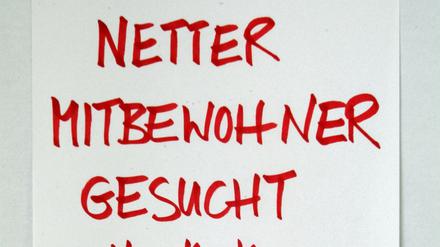 NETTER
MITBEWOHNER
GESUCHT